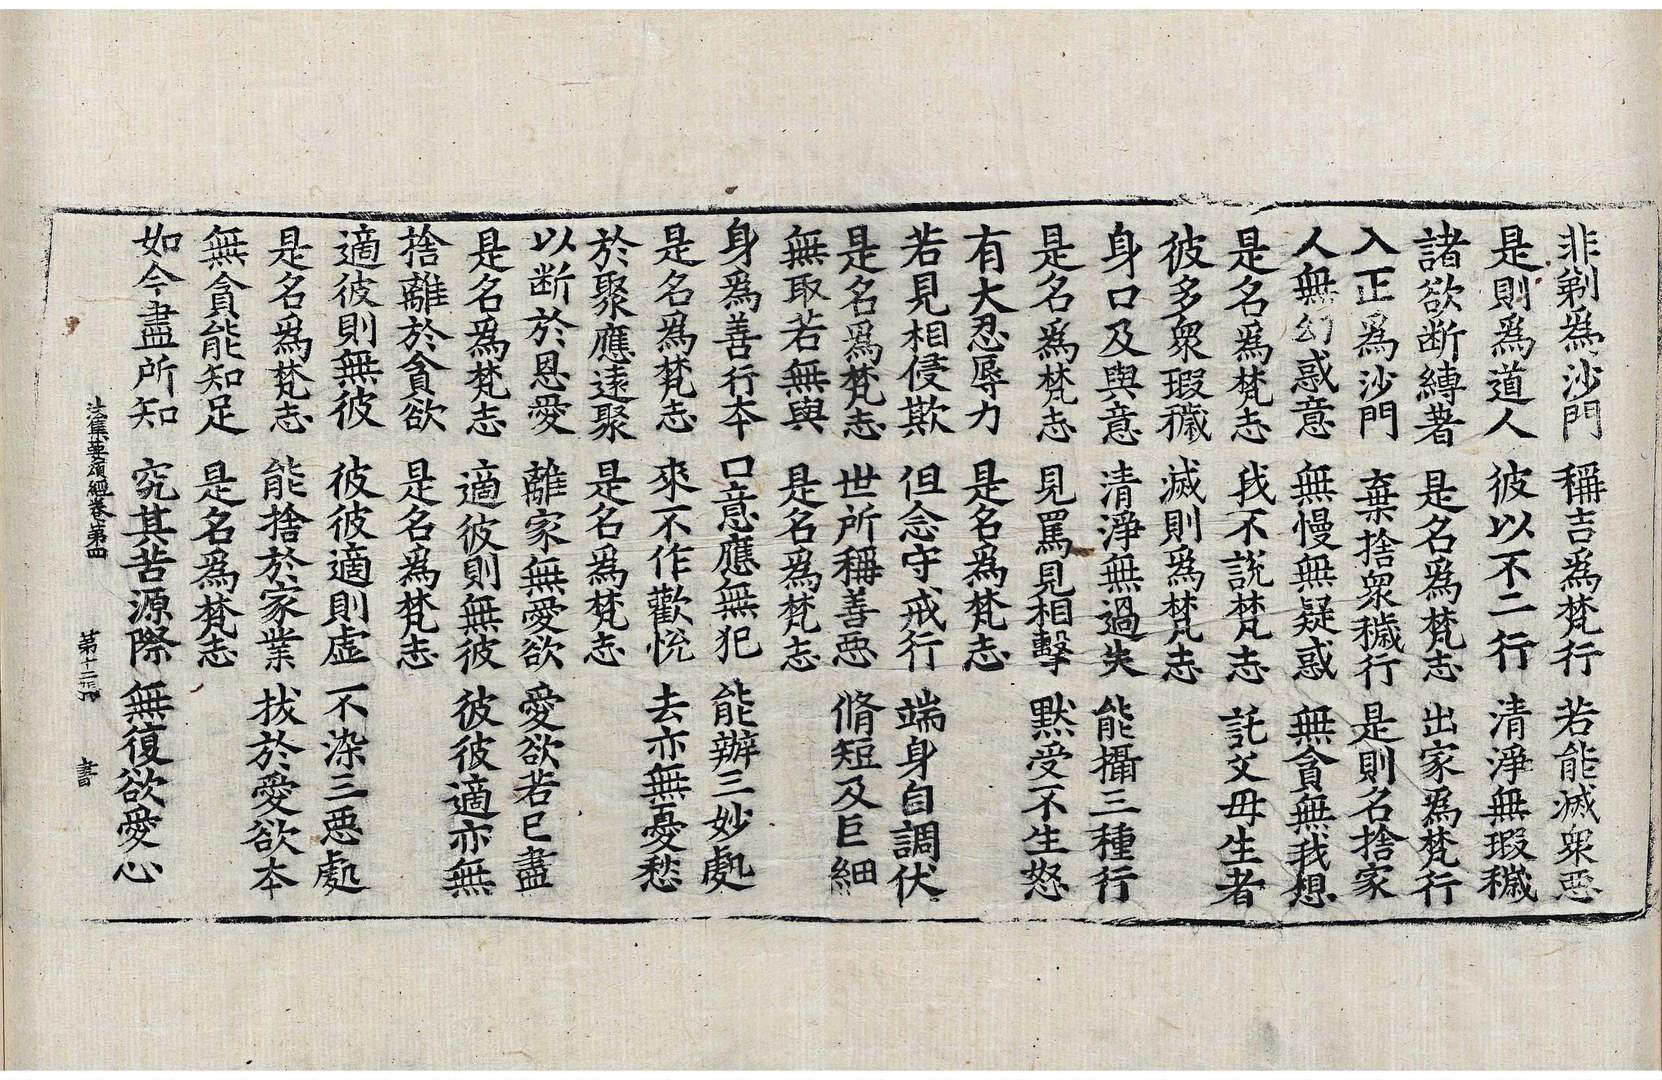 非剃為沙門　稱吉爲梵行　若能滅衆惡
是則爲道人　彼以不二行　清淨無瑕穢
諸欲断縛著　是名爲梵志　出家爲梵行
入正爲沙門　棄捨衆穢行　是則名捨家
人無幻惑意　無慢無疑惑　無貪無我想
是名爲梵志　我不說梵志　託父母生者
彼多衆瑕穢　滅則爲梵志
身口及與意　清淨無過失　能攝三種行
是名爲梵志　見罵見相擊　默受不生怒
有大忍辱力　是名爲梵志
若見相侵欺　但念守戒行　端身自調伏
是名爲梵志　世所稱善惡　脩短及巨細
無取若無與　是名爲梵志
身爲善行本　口意應無犯　能辦三妙處
是名爲梵志　來不作歡恱　去亦無憂愁
於聚應遠聚　是名爲梵志
以断於恩愛　離家無愛欲　愛欲若已盡
是名爲梵志　適彼則無彼　彼彼適亦無
捨離於貪欲　是名爲梵志
適彼則無彼　彼彼適則虛　不染三惡處
是名爲梵志　能捨於家業　拔於愛欲本
無貪能知足　是名爲梵志
如今盡所知　究其苦源際　無復欲愛心
法集要頌經卷第四　第十二張　書